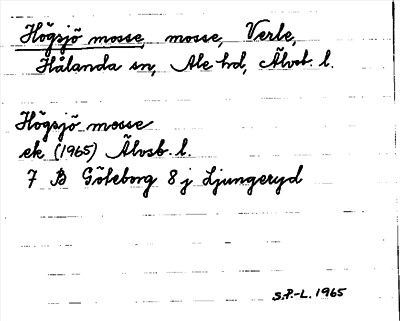 Högsjö mosse, mosse, Verle,
Hålanda sn, Ale hd, Älvsb. l.
Högsjö mosse
ek (1965) Älvsb. l.
7 B Göteborg 8 j Ljungeryd
S.P.-L. 1965